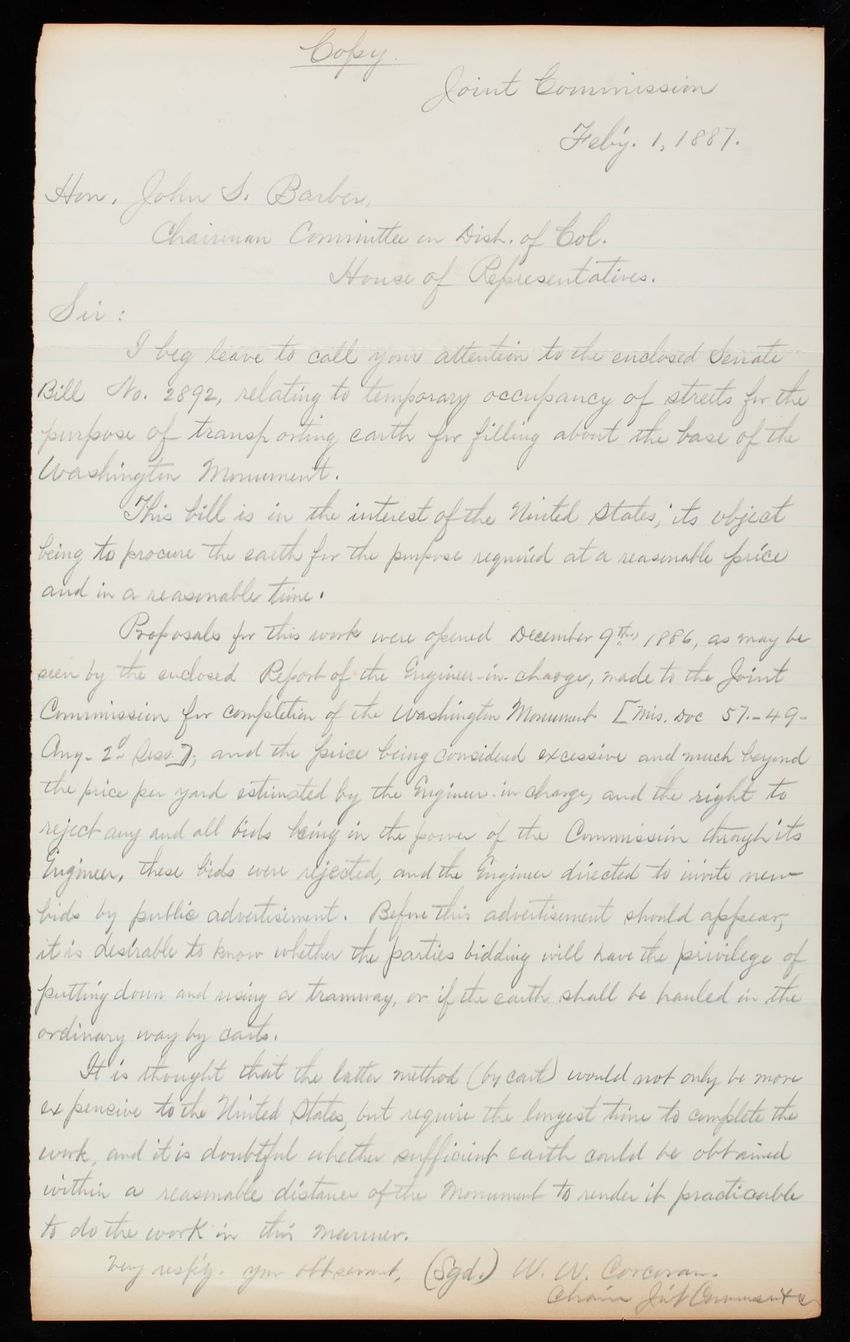 Copy.
Joint Commission
Feb'y. 1, 1887.
Hon. John S. Barber,
Chairman Committee on Dist. of Col.
House of Representatives.
Sir:
I beg leave to call your attention to the enclosed Senate
Bill No. 2892, relating to temporary occupancy of streets for the
purpose of transporting earth for filling about the base of the
Washington Monument.
This bill is in the interest of the United States, its object
being to procure the earth for the purpose required at a reasonable price
and in a reasonable time.
Proposals for this work were opened December 9th, 1886, as may be
seen by the enclosed Report of the Engineer-in-charge, made to the Joint
Commission for completion of the Washington Monument [Mis. Doc 57.-49-
2d Sess.], and the price being considered excessive and much beyond
the price per yard estimated by the Engineer-in charge, and the right to
reject any and all bids being in the power of the Commission through its
Engineer, these bids were rejected, and the Engineer directed to invite new
bids by public advertisement. Before this advertisement should appear,
it is desirable to know whether the parties bidding will have the privilege of
putting down and using a tramway, or if the earth shall be hauled in the
ordinary way by carts.
It is thought that the latter method (by cart) would not only be more
expensive to the United States, but require the longest time to complete the
work, and it is doubtful whether sufficient earth could be obtained
within a reasonable distance of the Monument to render it practicable
to do the work in this manner.
Very resp'y. your obt servant, (Sgd.) W. W. Corcoran.
Chairn Jt